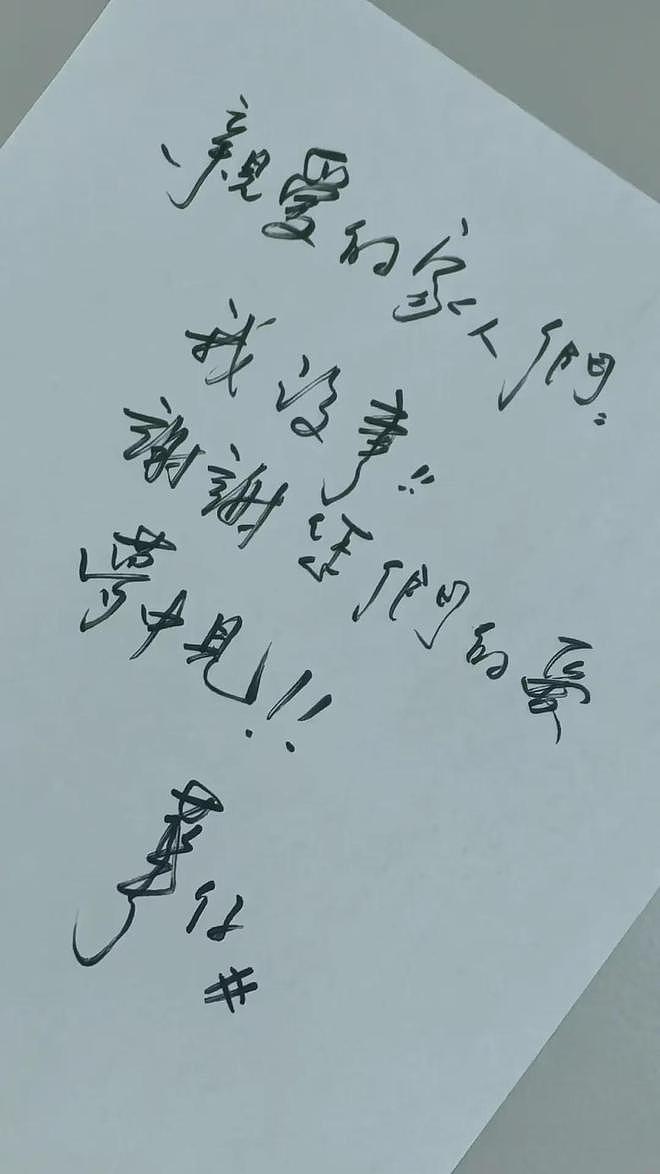 親愛的家人們:
我没事!!
謝謝宝們的愛
夢中見!!
華仔
#